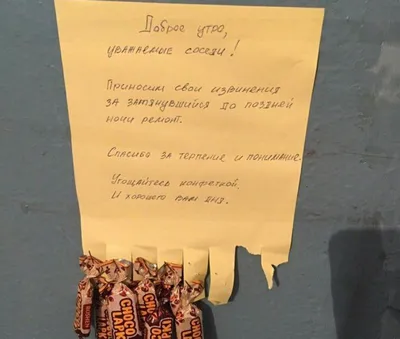 Доброе утро,
уважаемые соседи!
Приносим свои извинения
за затянувшийся до поздней
ночи ремонт.
Спасибо за терпение и понимание.
Угощайтесь конфеткой.
И хорошего вам дня.
CHOCO